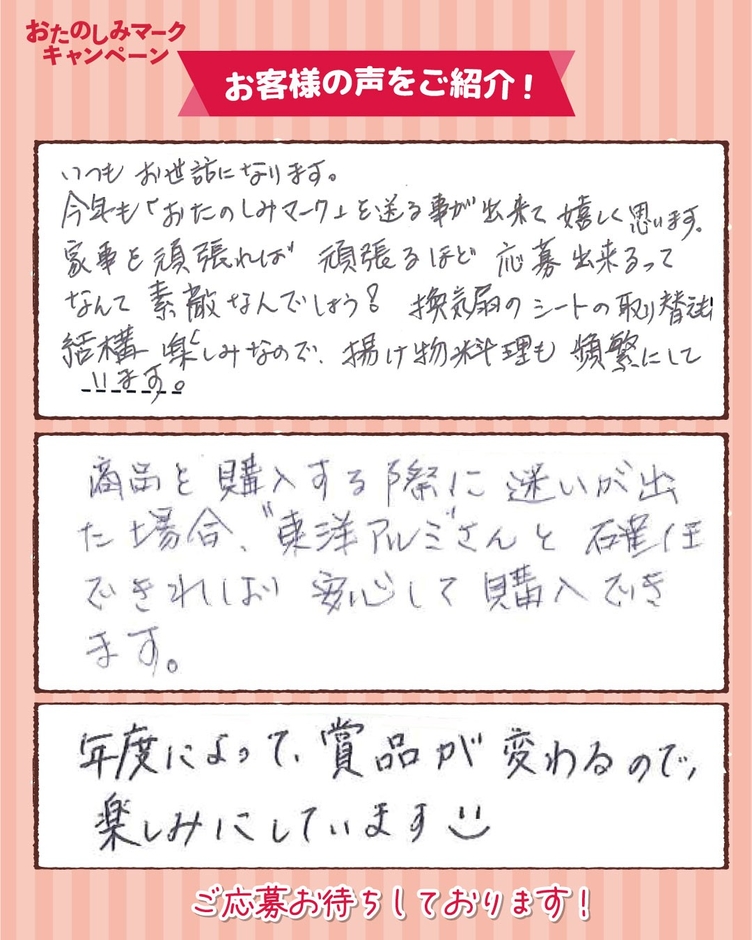 おたのしみマーク
キャンペーン
お客様の声をご紹介！
いつも お世話になります。
今年も「おたのしみマーク」を送る事が出来て 嬉しく思います。
家事を頑張れば 頑張るほど 応募出来るって
なんて 素敵なんでしょう？ 換気扇のシートの取り替えも
結構 楽しみなので、揚げ物料理も 頻繁にして
います。
商品を購入する際に迷いが出
た場合、"東洋アルミ"さんと確認
できれば 安心して購入でき
ます。
年度によって、賞品が変わるので、
楽しみにしています
ご応募お待ちしております！